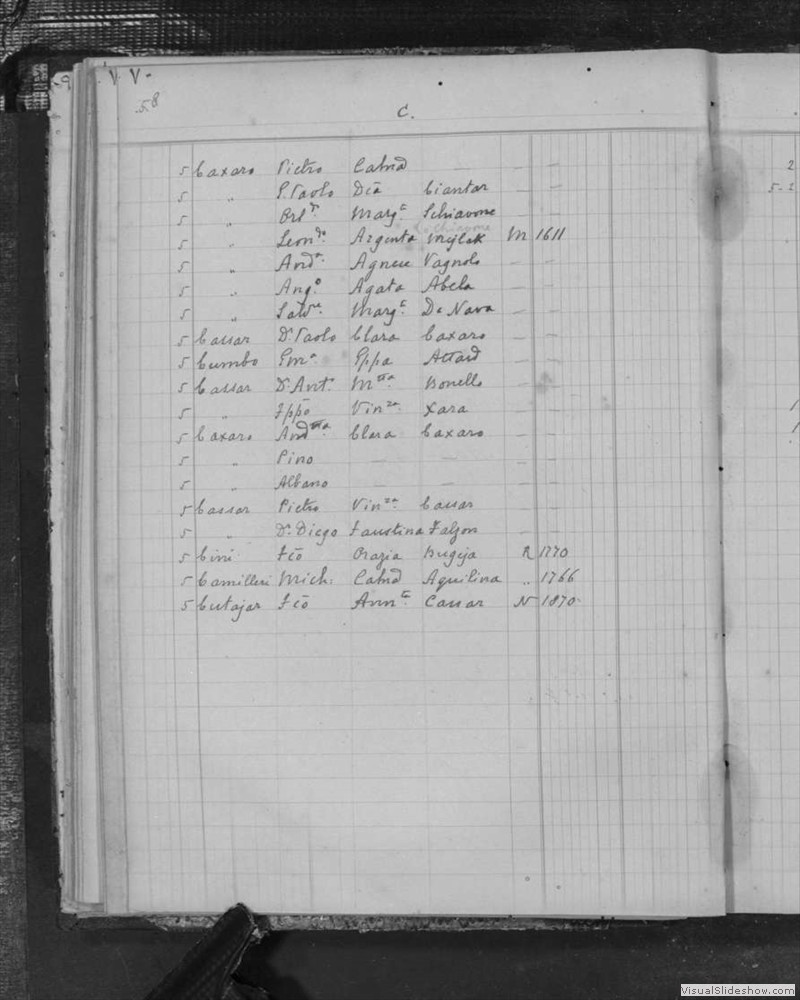 V V.
58
C.
5 Caxaro Pietro Catnd — — —
5 " P. Paolo Dca Ciantar — —
5 " Brl Marg Schiavone — —
5 " Leon Argenta Mejlak M 1611
5 " And Agnese Vagnolo — —
5 " Ang° Agata Abela — —
5 " Salv Marg De Nava — —
5 Cassar Dr Paolo Clara Caxaro — —
5 Cumbo Gma Gppa Attard — —
5 Cassar Dr Ant° Mtta Bonello — —
5 " Fppo Vinza Xara — —
5 Caxaro And Clara Caxaro — —
5 " Pino — — — —
5 " Albano — — — —
5 Cassar Pietro Vinza Cassar — —
5 " Dr Diego Faustina Falzon — —
5 Cini Fco Orazia Bugeja R 1770
5 Camilleri Mich: Catnd Aquilina " 1766
5 Cutajar Fco Ann Cassar N 1870
VisualSlideshow.com